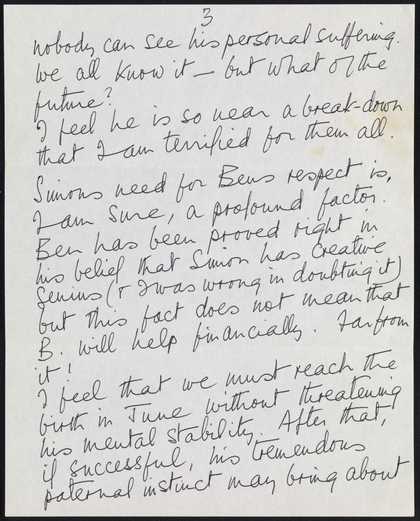 3
nobody can see his personal suffering.
We all know it — but what of the
future?
I feel he is so near a break-down
that I am terrified for them all.
Simons need for Bens respect is,
I am sure, a profound factor.
Ben has been proved right in
his belief that Simon has creative
genius (& I was wrong in doubting it)
but this fact does not mean that
B. will help financially. Far from
it!
I feel that we must reach the
birth in June without threatening
his mental stability. After that,
if successful, his tremendous
paternal instinct may bring about